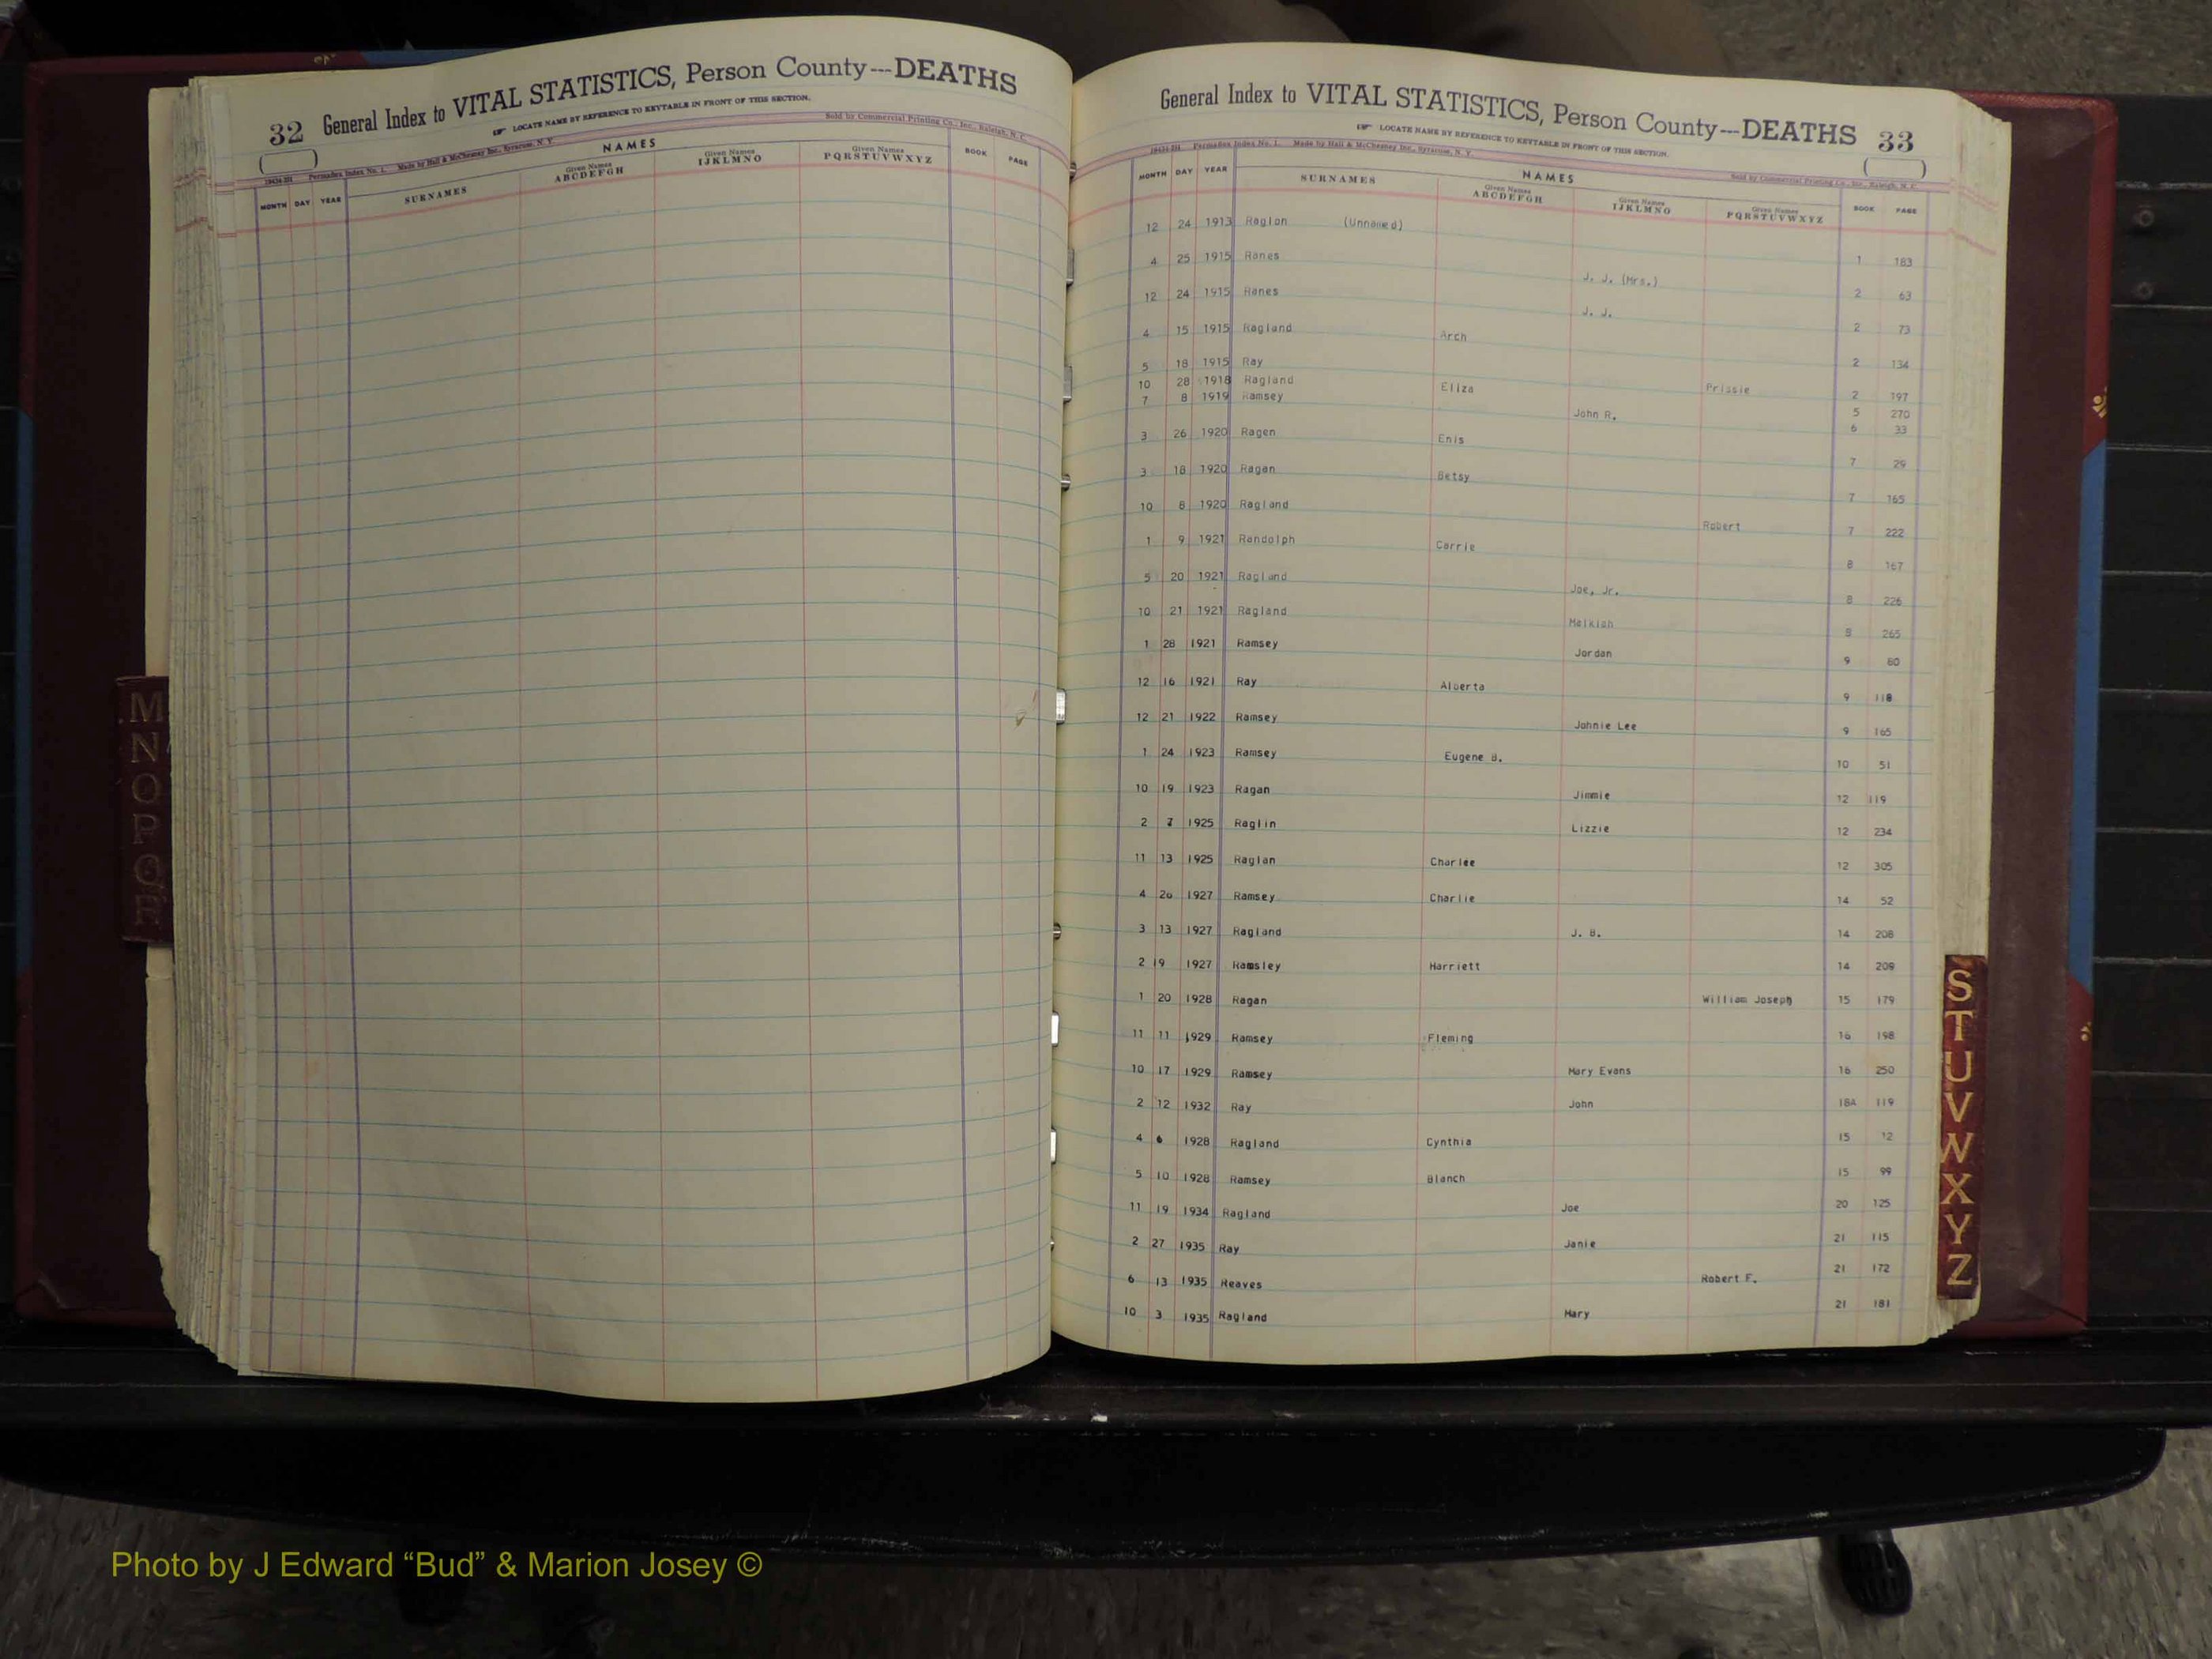 32 General Index to VITAL STATISTICS, Person County---DEATHS
LOCATE NAME BY REFERENCE TO KEYTABLE IN FRONT OF THIS SECTION.
Permadex Index No. 1. Made by Hall & McChesney Inc., Syracuse, N. Y. Sold by Commercial Printing Co., Inc., Raleigh, N. C.
NAMES
MONTH DAY YEAR SURNAMES Given Names ABCDEFGH Given Names IJKLMNO Given Names PQRSTUVWXYZ BOOK PAGE
General Index to VITAL STATISTICS, Person County---DEATHS 33
LOCATE NAME BY REFERENCE TO KEYTABLE IN FRONT OF THIS SECTION.
Permadex Index No. 1. Made by Hall & McChesney Inc., Syracuse, N. Y. Sold by Commercial Printing Co., Inc., Raleigh, N. C.
NAMES
MONTH DAY YEAR SURNAMES Given Names ABCDEFGH Given Names IJKLMNO Given Names PQRSTUVWXYZ BOOK PAGE
12 24 1913 Raglan (Unnamed) 1 183
4 25 1915 Ranes J. J. (Mrs.) 2 63
12 24 1915 Ranes J. J. 2 73
4 15 1915 Ragland Arch 2 134
5 18 1915 Ray Prissie 2 197
10 28 1918 Ragland Eliza 5 270
7 8 1919 Ramsey John R. 6 33
3 26 1920 Ragen Enis 7 29
3 18 1920 Ragan Betsy 7 165
10 8 1920 Ragland Robert 7 222
1 9 1921 Randolph Carrie 8 167
5 20 1921 Ragland Joe, Jr. 8 226
10 21 1921 Ragland Melkiah 8 265
1 28 1921 Ramsey Jordan 9 80
12 16 1921 Ray Alberta 9 118
12 21 1922 Ramsey Johnie Lee 9 165
1 24 1923 Ramsey Eugene B. 10 51
10 19 1923 Ragan Jimmie 12 119
2 7 1925 Raglin Lizzie 12 234
11 13 1925 Raglan Charlee 12 305
4 26 1927 Ramsey Charlie 14 52
3 13 1927 Ragland J. B. 14 208
2 19 1927 Ramsley Harriett 14 209
1 20 1928 Ragan William Joseph 15 179
11 11 1929 Ramsey Fleming 16 198
10 17 1929 Ramsey Mary Evans 16 250
2 12 1932 Ray John 18A 119
4 6 1928 Ragland Cynthia 15 12
5 10 1928 Ramsey Blanch 15 99
11 19 1934 Ragland Joe 20 125
2 27 1935 Ray Janie 21 115
6 13 1935 Reaves Robert F. 21 172
10 3 1935 Ragland Mary 21 181
M
N
O
P
Q
R
S
T
U
V
W
X
Y
Z
Photo by J Edward “Bud” & Marion Josey ©